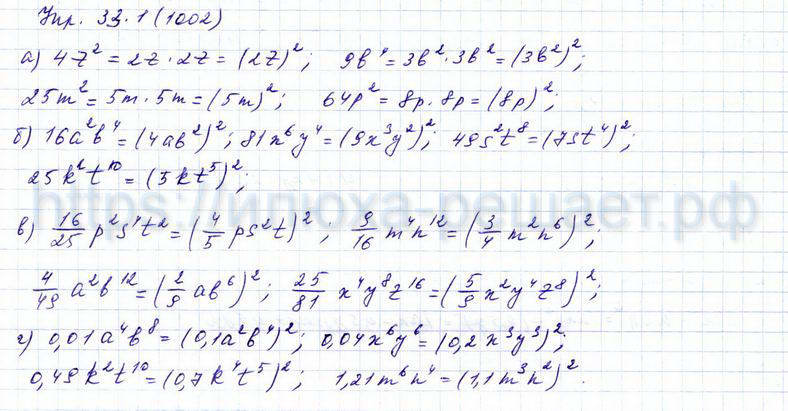 Упр. 33.1 (1002)
а) 4z² = 2z · 2z = (2z)²; 9b⁴ = 3b² · 3b² = (3b²)²;
25m² = 5m · 5m = (5m)²; 64p² = 8p · 8p = (8p)²;
б) 16a²b⁴ = (4ab²)²; 81x⁶y⁴ = (9x³y²)²; 49s²t⁸ = (7st⁴)²;
25k²t¹⁰ = (5kt⁵)²;
https://илюха-решает.рф
в) 16/25 p²s⁴t² = (4/5 ps²t)²; 9/16 m⁴n¹² = (3/4 m²n⁶)²;
4/49 a²b¹² = (2/9 ab⁶)²; 25/81 x⁴y⁸z¹⁶ = (5/9 x²y⁴z⁸)²;
г) 0,01a⁴b⁸ = (0,1a²b⁴)²; 0,04x⁶y⁶ = (0,2x³y³)²;
0,49k²t¹⁰ = (0,7k⁴t⁵)²; 1,21m⁶n⁴ = (1,1m³n²)².